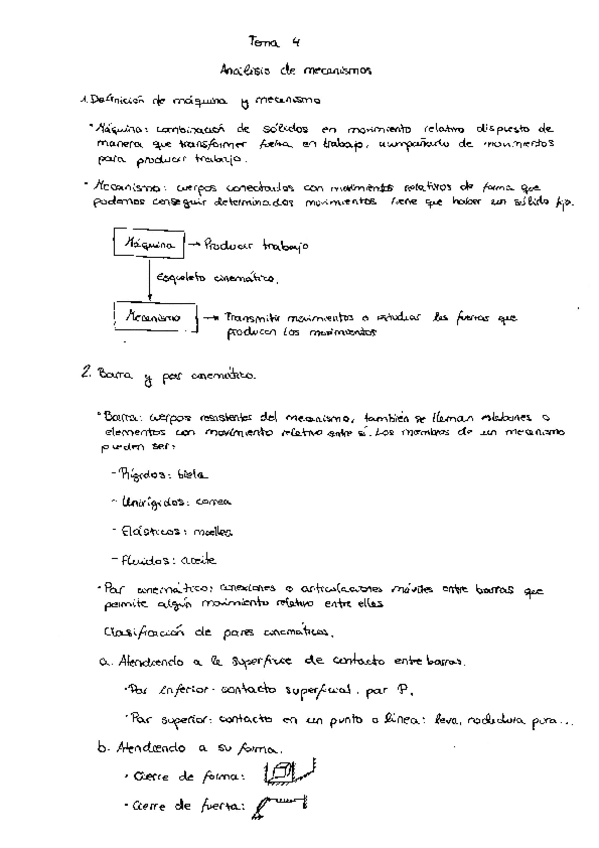 Tema 4
Análisis de mecanismos
1. Definición de máquina y mecanismo
· Máquina: combinación de sólidos en movimiento relativo dispuesto de
manera que transformer fuerza en trabajo, acompañado de movimientos
para producir trabajo.
· Mecanismo: cuerpos conectados con movimientos relativos de forma que
podamos conseguir determinados movimientos tiene que haber un sólido fijo.
Máquina → Producir trabajo
Esqueleto cinemático.
Mecanismo → Transmitir movimientos o estudiar las fuerzas que
producen los movimientos
2. Barra y par cinemático.
· Barra: cuerpos resistentes del mecanismo, también se llaman eslabones o
elementos con movimiento relativo entre sí. Los miembros de un mecanismo
pueden ser:
- Rígidos: biela
- Unirígidos: correa
- Elásticos: muelles
- Fluidos: aceite
· Par cinemático: conexiones o articulaciones móviles entre barras que
permite algún movimiento relativo entre ellas
Clasificación de pares cinemáticos.
a. Atendiendo a la superficie de contacto entre barras.
· Par inferior: contacto superficial. par P.
· Par superior: contacto en un punto o línea: leva, rodadura pura...
b. Atendiendo a su forma.
· Cierre de forma:
· Cierre de fuerza: